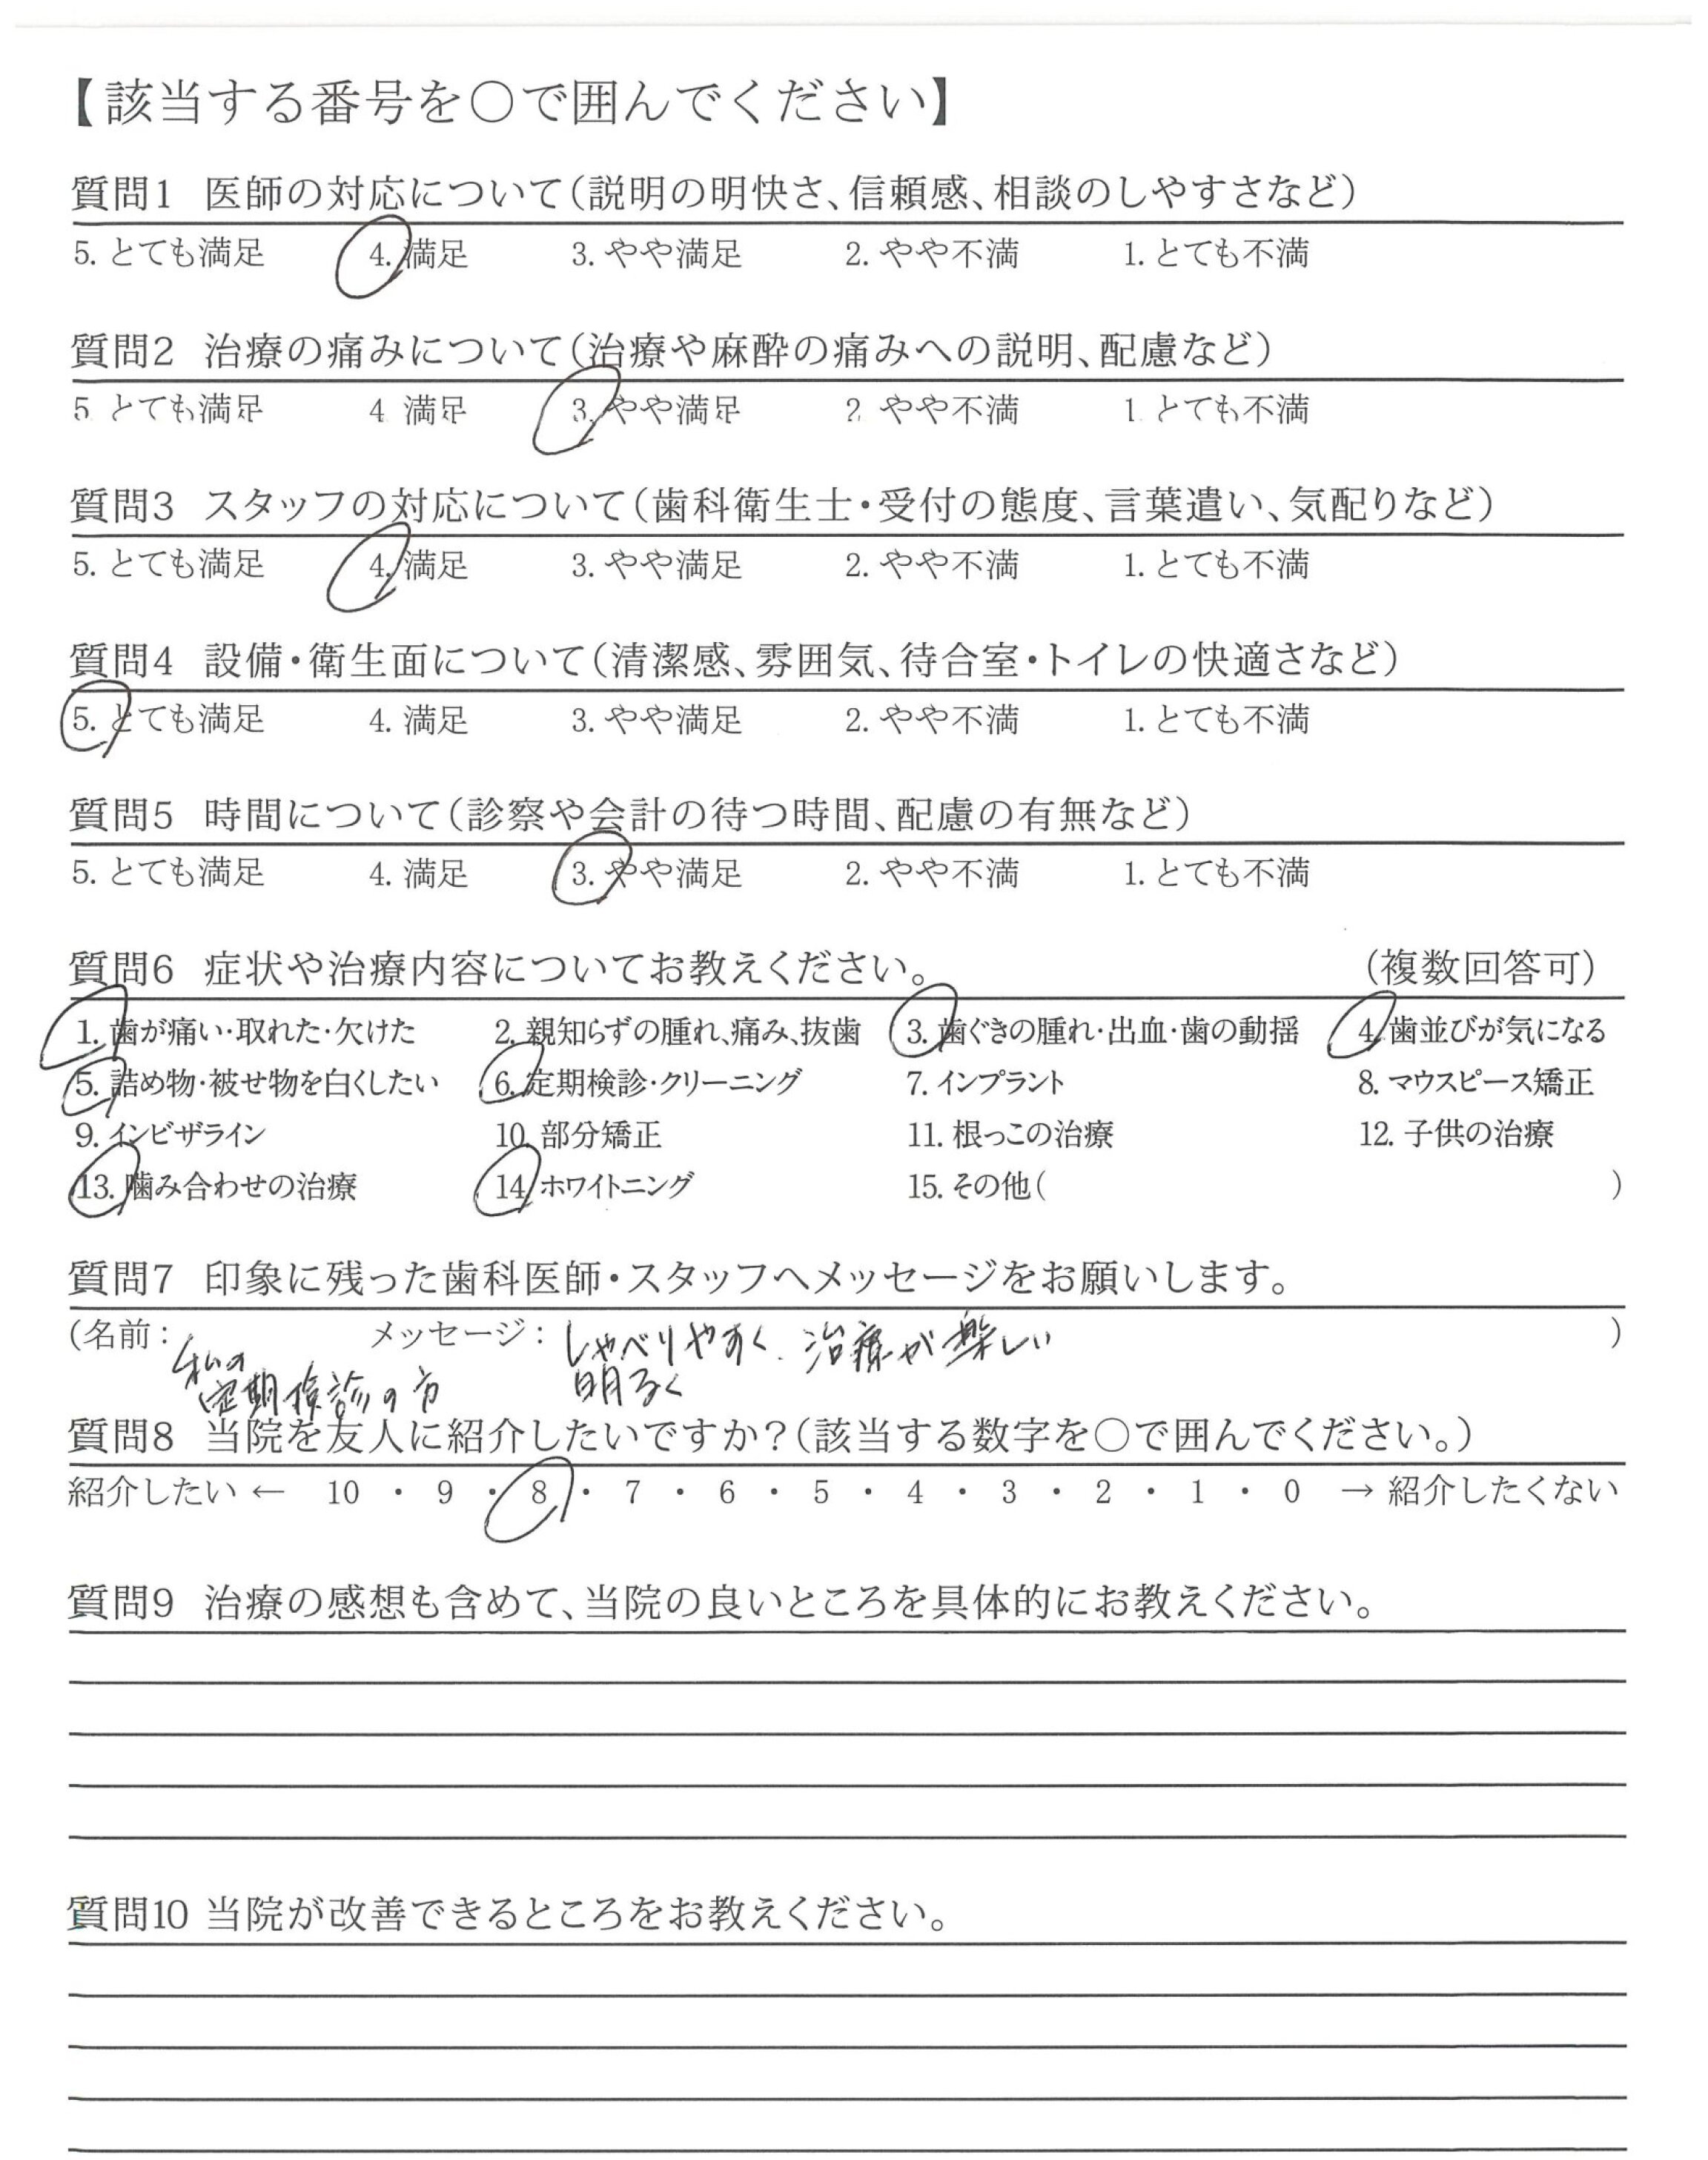 【該当する番号を○で囲んでください】
質問1 医師の対応について(説明の明快さ、信頼感、相談のしやすさなど)
5. とても満足 4. 満足 3. やや満足 2. やや不満 1. とても不満
質問2 治療の痛みについて(治療や麻酔の痛みへの説明、配慮など)
5. とても満足 4. 満足 3. やや満足 2. やや不満 1. とても不満
質問3 スタッフの対応について(歯科衛生士・受付の態度、言葉遣い、気配りなど)
5. とても満足 4. 満足 3. やや満足 2. やや不満 1. とても不満
質問4 設備・衛生面について(清潔感、雰囲気、待合室・トイレの快適さなど)
5. とても満足 4. 満足 3. やや満足 2. やや不満 1. とても不満
質問5 時間について(診察や会計の待つ時間、配慮の有無など)
5. とても満足 4. 満足 3. やや満足 2. やや不満 1. とても不満
質問6 症状や治療内容についてお教えください。 (複数回答可)
1. 歯が痛い・取れた・欠けた 2. 親知らずの腫れ、痛み、抜歯 3. 歯ぐきの腫れ・出血・歯の動揺 4. 歯並びが気になる
5. 詰め物・被せ物を白くしたい 6. 定期検診・クリーニング 7. インプラント 8. マウスピース矯正
9. インビザライン 10. 部分矯正 11. 根っこの治療 12. 子供の治療
13. 噛み合わせの治療 14. ホワイトニング 15. その他( )
質問7 印象に残った歯科医師・スタッフへメッセージをお願いします。
(名前: メッセージ: しゃべりやすく、治療が楽しい )
私の
定期検診の方 明るく
質問8 当院を友人に紹介したいですか?(該当する数字を○で囲んでください。)
紹介したい ← 10 ・ 9 ・ 8 ・ 7 ・ 6 ・ 5 ・ 4 ・ 3 ・ 2 ・ 1 ・ 0 → 紹介したくない
質問9 治療の感想も含めて、当院の良いところを具体的にお教えください。
質問10 当院が改善できるところをお教えください。